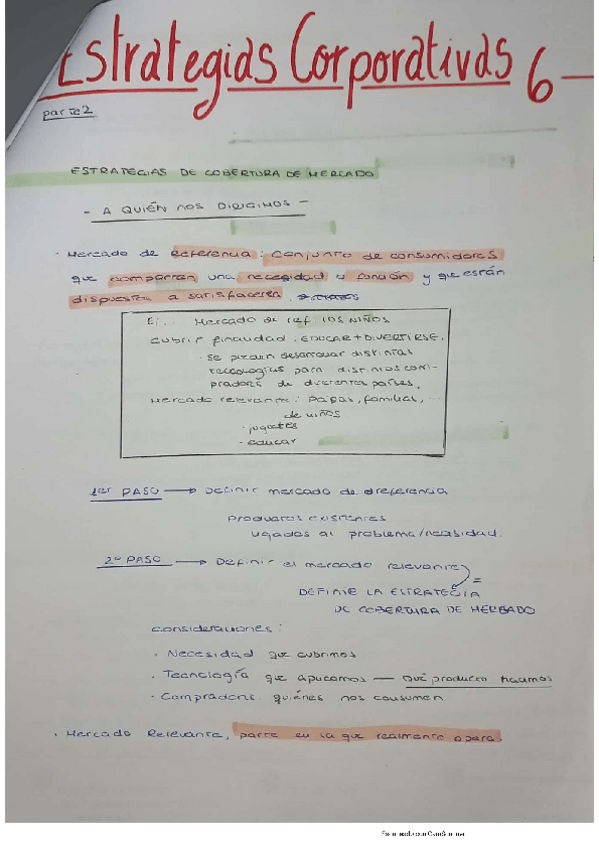 Estrategias Corporativas 6
parte 2
ESTRATEGIAS DE COBERTURA DE MERCADO
- A QUIÉN NOS DIRIGIMOS -
· Mercado de Referencia: Conjunto de consumidores
que comparten una necesidad o función y que están
dispuestos a satisfacerla
Ej... Mercado de ref. LOS NIÑOS
Cubrir finalidad: EDUCAR + DIVERTIRSE.
· Se pueden desarrollar distintas
tecnologías para distintos com-
pradores de diferentes países.
Mercado relevante: Papas, familias, ...
de niños
- juguetes
- educar
1er PASO → Definir mercado de referencia
productos existentes
ligados al problema/necesidad.
2º PASO → Definir el mercado relevante
=
DEFINIR LA ESTRATEGIA
DE COBERTURA DE MERCADO
Consideraciones:
· Necesidad que cubrimos
· Tecnología que aplicamos — Qué producto hacemos
· Compradores: quiénes nos consumen
· Mercado Relevante, parte en la que realmente opera.